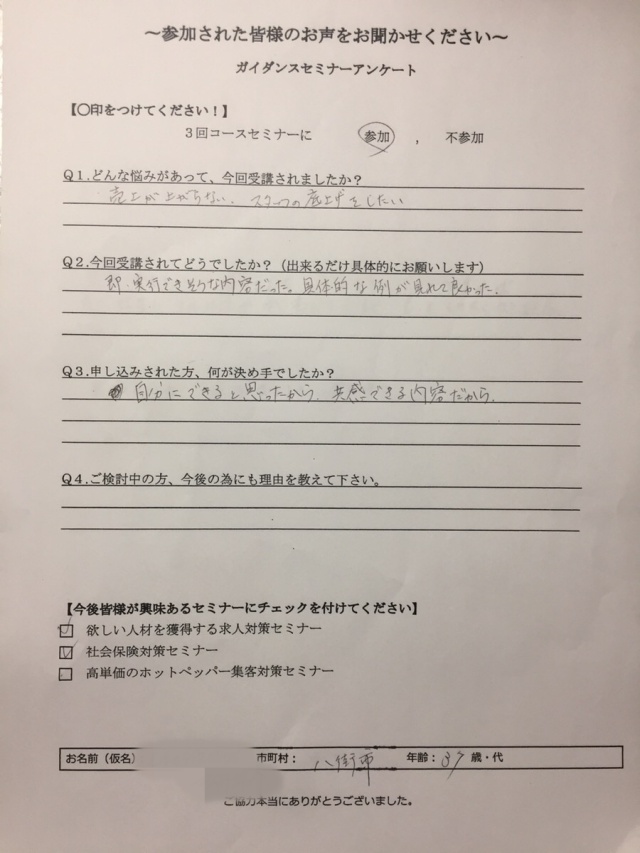 ～参加された皆様のお声をお聞かせください～
ガイダンスセミナーアンケート
【〇印をつけてください！】
３回コースセミナーに　参加　，　不参加
Ｑ１.どんな悩みがあって、今回受講されましたか？
売上が上がらない、スタッフの底上げをしたい
Ｑ２.今回受講されてどうでしたか？（出来るだけ具体的にお願いします）
即・実行できそうな内容だった。具体的な例が見れて良かった。
Ｑ３.申し込みされた方、何が決め手でしたか？
自分にできると思ったから、共感できる内容だから。
Ｑ４.ご検討中の方、今後の為にも理由を教えて下さい。
【今後皆様が興味あるセミナーにチェックを付けてください】
☑ 欲しい人材を獲得する求人対策セミナー
☑ 社会保険対策セミナー
☐ 高単価のホットペッパー集客対策セミナー
お名前（仮名）　市町村：　八街市　年齢：37 歳・代
ご協力本当にありがとうございました。